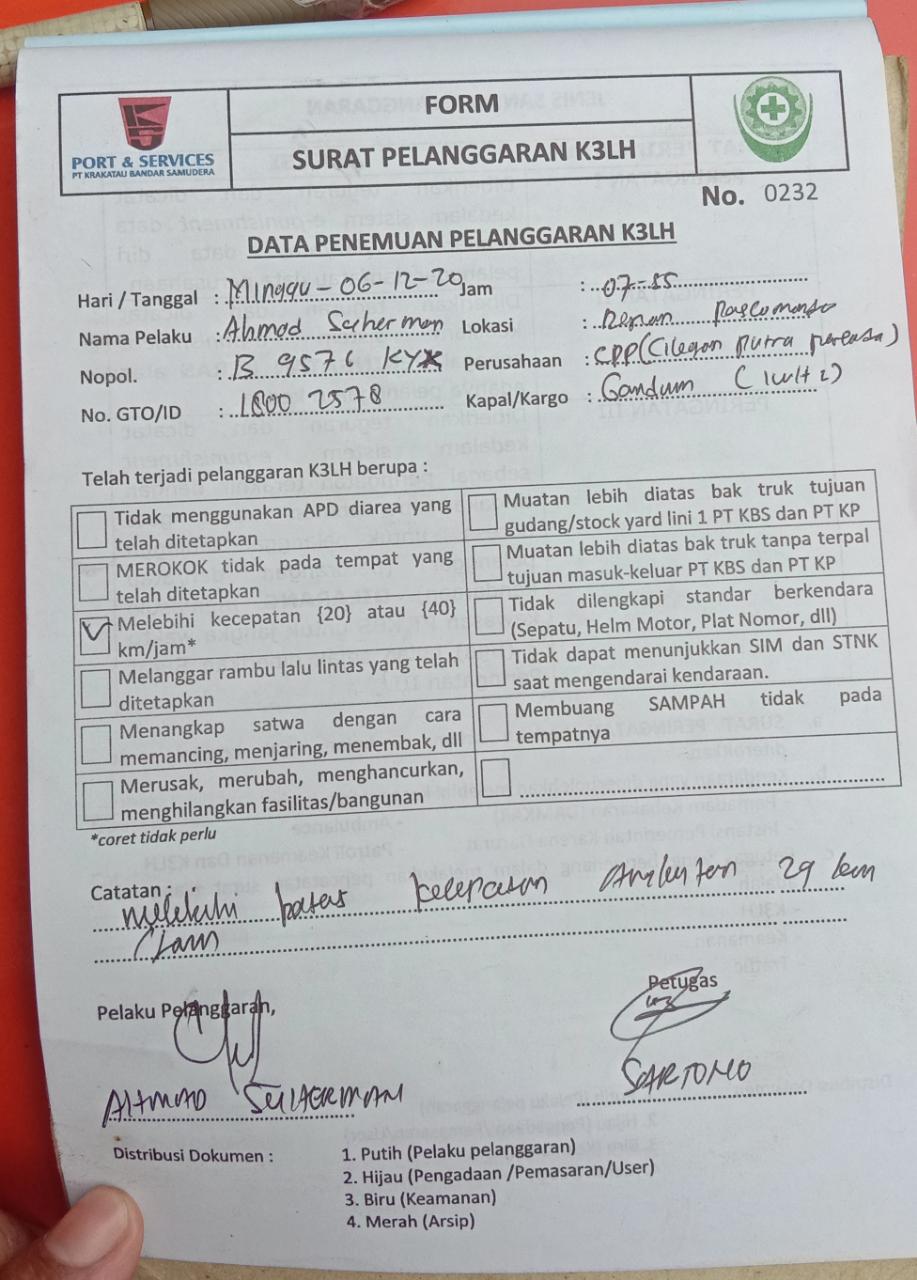 PORT & SERVICES
PT KRAKATAU BANDAR SAMUDERA
FORM
SURAT PELANGGARAN K3LH
No. 0232
DATA PENEMUAN PELANGGARAN K3LH
Hari / Tanggal : Minggu - 06-12-20 Jam : 07-55
Nama Pelaku : Ahmad Suherman Lokasi : Depan
Nopol. : B 9576 KYX Perusahaan : CPP (Cilegon Putra
No. GTO/ID : 1800 2578 Kapal/Kargo : Gandum
Telah terjadi pelanggaran K3LH berupa :
Tidak menggunakan APD diarea yang
telah ditetapkan
Muatan lebih diatas bak truk tujuan
gudang/stock yard lini 1 PT KBS dan PT KP
MEROKOK tidak pada tempat yang
telah ditetapkan
Muatan lebih diatas bak truk tanpa terpal
tujuan masuk-keluar PT KBS dan PT KP
Melebihi kecepatan {20} atau {40}
km/jam*
Tidak dilengkapi standar berkendara
(Sepatu, Helm Motor, Plat Nomor, dll)
Melanggar rambu lalu lintas yang telah
ditetapkan
Tidak dapat menunjukkan SIM dan STNK
saat mengendarai kendaraan.
Menangkap satwa dengan cara
memancing, menjaring, menembak, dll
Membuang SAMPAH tidak pada
tempatnya
Merusak, merubah, menghancurkan,
menghilangkan fasilitas/bangunan
*coret tidak perlu
Catatan :
melebihi batas kecepatan 29 km
/Jam
Pelaku Pelanggaran,
Petugas
AHMAD SUHERMAN
SARTONO
Distribusi Dokumen :
1. Putih (Pelaku pelanggaran)
2. Hijau (Pengadaan /Pemasaran/User)
3. Biru (Keamanan)
4. Merah (Arsip)